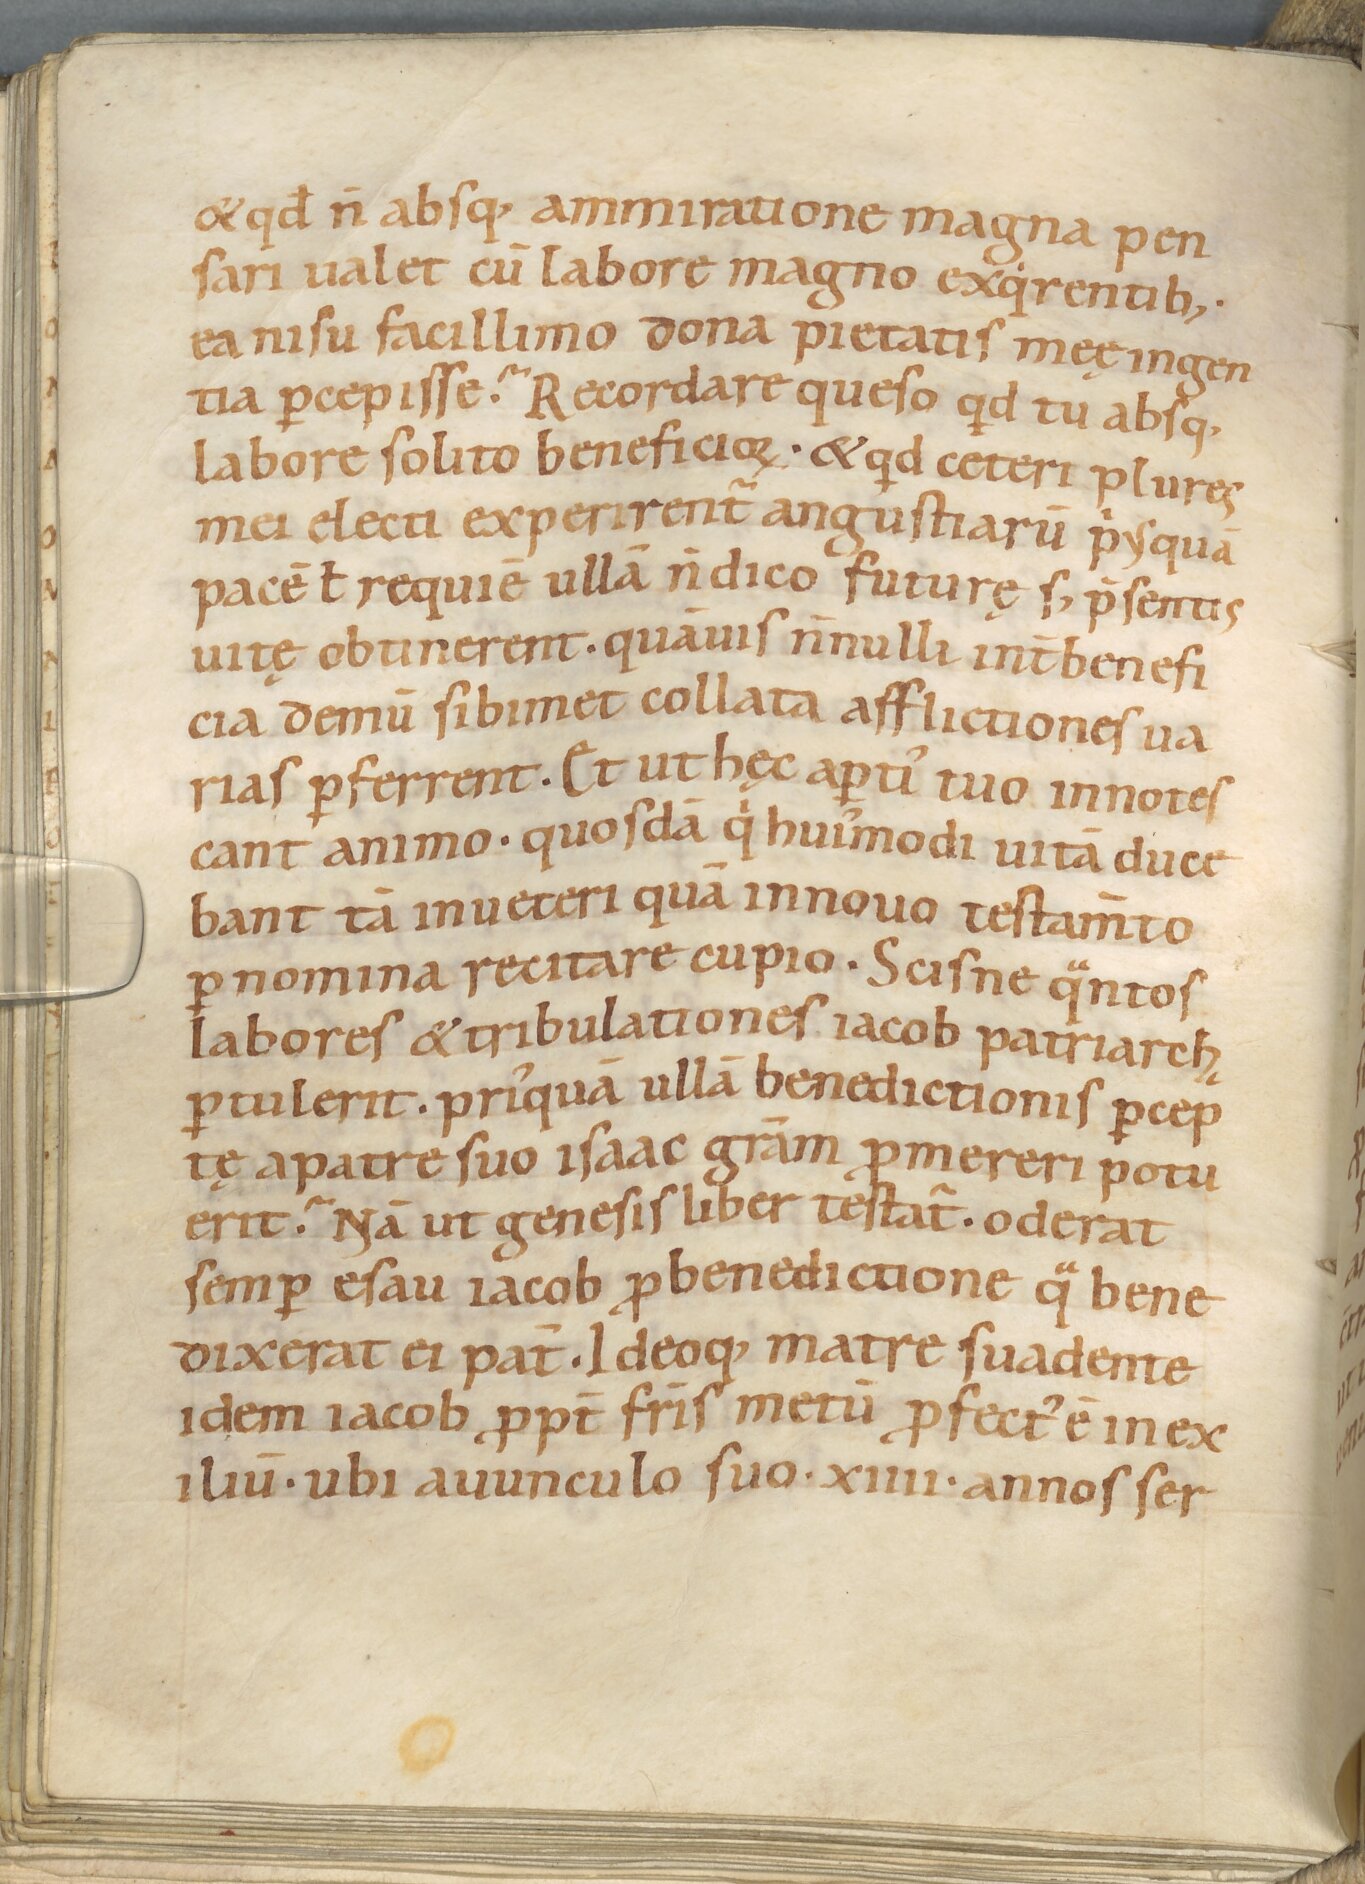 &qđ n̄ absq, ammiratione magna pen
sari ualet cū labore magno exqͥrentib,.
ea nisu facillimo dona pietatis meę ingen
tia ꝑcepisse.~ Recordare queso qđ tu absq,
labore solito beneficioꝝ. & qđ ceteri plures
mei electi experirent̄ angustiarū pͥꝰquā
pacē ł requiē ullā n̄ dico futurę s, p̄sentis
uitę obtinerent. quāuis n̄nulli int̄ benefi
cia demū sibimet collata afflictiones ua
rias ꝑferrent. Et ut hęc aꝑtiꝰ tuo innotes
cant animo. quosdā qͥ huiꝰmodi uitā duce
bant tā inueteri quā innouo testam̄to
ꝑ nomina recitare cupio. Scisne qͣntos
labores & tribulationes iacob patriarchę
ꝑtulerit. priꝰquā ullā benedictionis ꝑcep
tę apatre suo isaac grām ꝓmereri potu
erit.~ Nā ut genesis liber testat̄. oderat
semꝑ esau iacob ꝓ benedictione qͣ bene
dixerat ei pat̄. Ideoq, matre suadente
idem iacob ꝓpt̄ fr̄is metū ꝓfectꝰ ē in ex
iliū. ubi auunculo suo. xiiii. annos ser